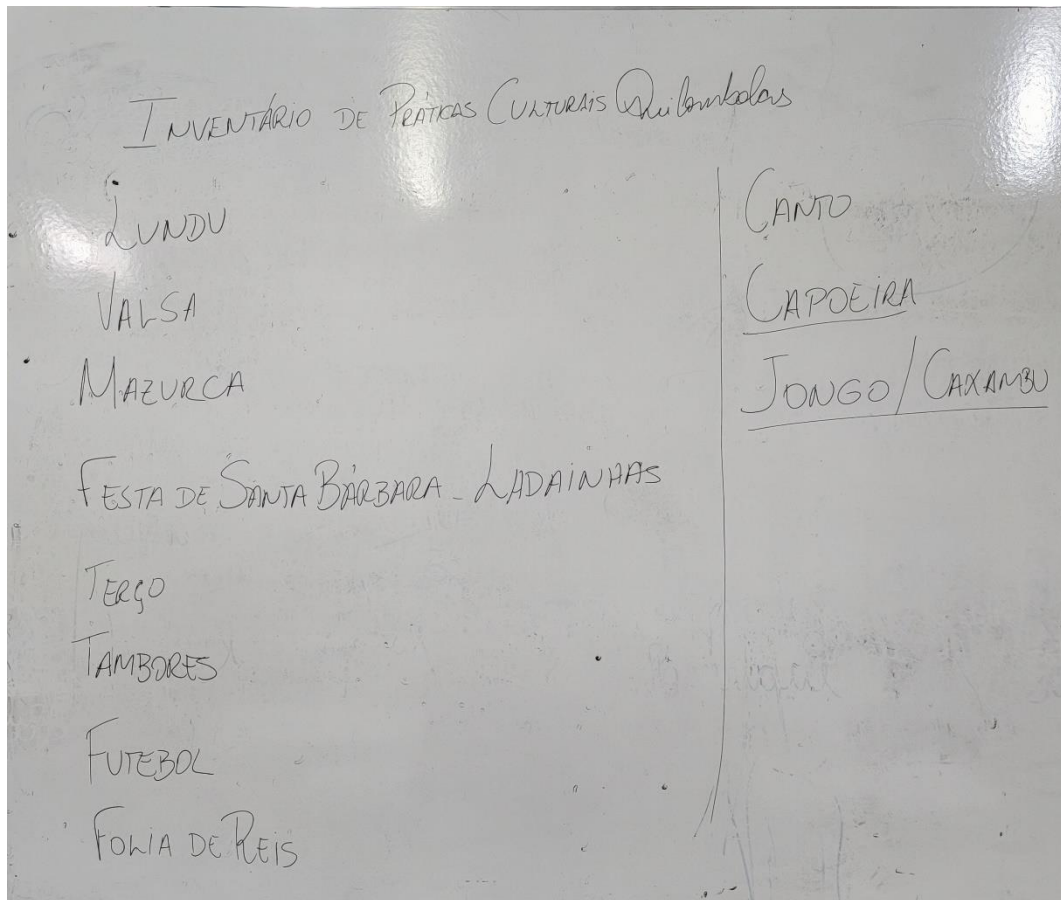 INVENTÁRIO DE PRÁTICAS CULTURAIS Quilombolas
LUNDU
VALSA
MAZURCA
FESTA DE SANTA BÁRBARA - LADAINHAS
TERÇO
TAMBORES
FUTEBOL
FOLIA DE REIS
CANTO
CAPOEIRA
JONGO/CAXAMBU